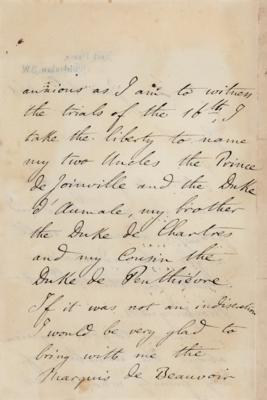 anxious as I am to witness
the trials of the 16th, I
take the liberty to name
my two Uncles the Prince
de Joinville and the Duke
d'Aumale, my brother
the Duke de Chartres
and my Cousin the
Duke de Penthièvre.
If it was not an indiscretion
I would be very glad to
bring with me the
Marquis de Beauvoir